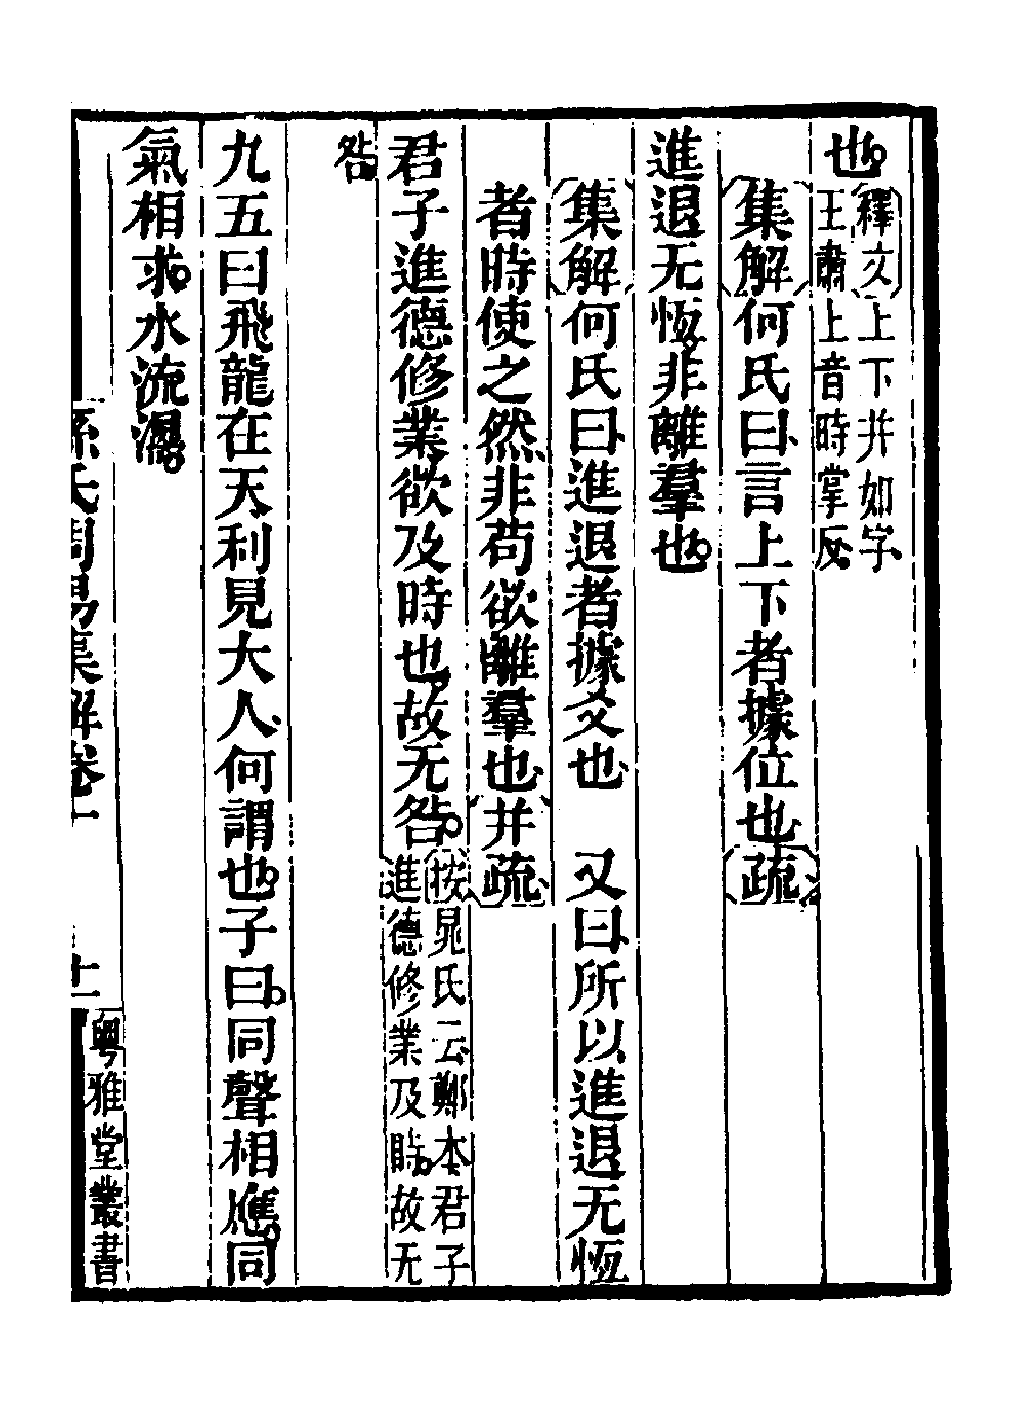 也釋文上下并如字王肅上音時掌反
集解何氏曰言上下者據位也疏
進退无恆非離羣也
集解何氏曰進退者據爻也　又曰所以進退无恆
者時使之然非苟欲離羣也并疏
君子進德修業欲及時也故无咎按晁氏云鄭本君子進德修業及時故无
咎
九五曰飛龍在天利見大人何謂也子曰同聲相應同
氣相求水流濕
孫氏周易集解卷一
十一
粵雅堂叢書